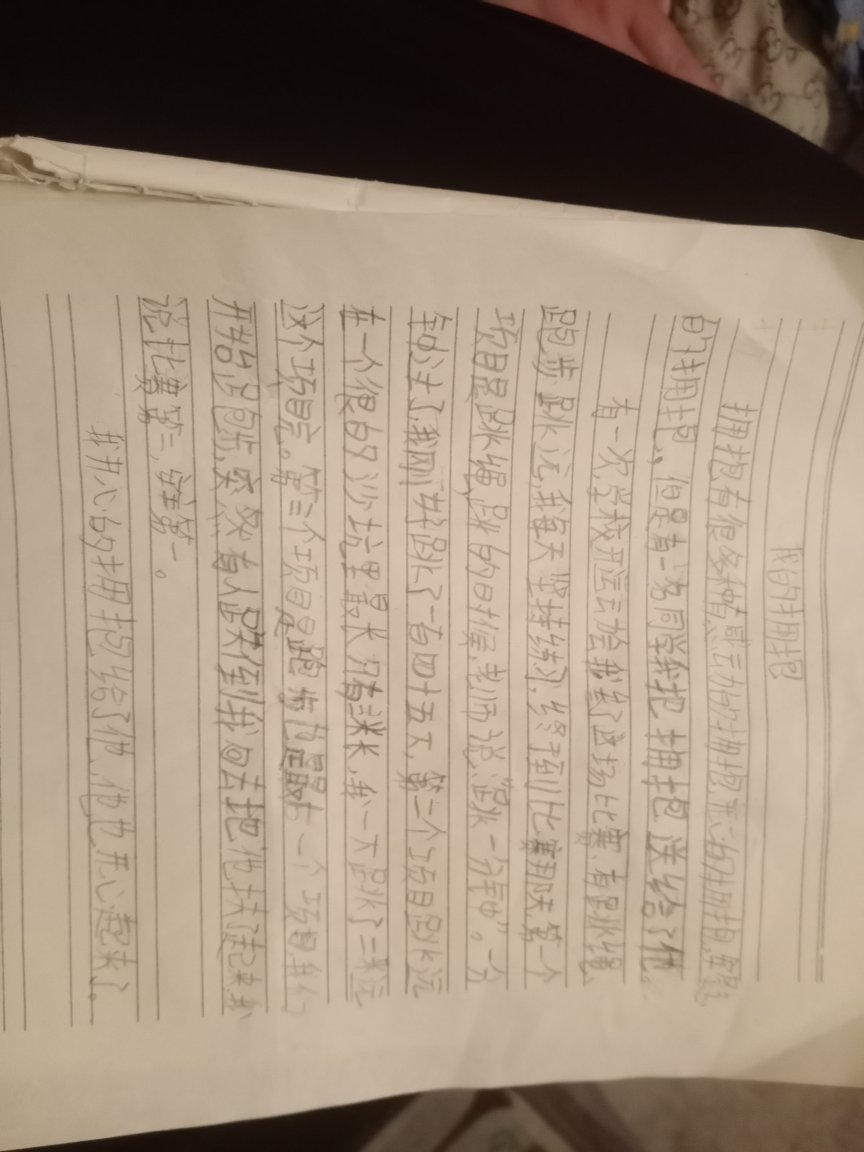 我的拥抱
拥抱有很多种有感动的拥抱,开心的拥抱,安慰
的拥抱,但是有一名同学我把拥抱送给了他。
有一次,学校开运会我参了这场比赛,有跳绳、
跑步、跳远,我每天坚持练习,终于到比赛那天,第一个
项目是跳绳,跳的时候,老师说:“跳一分钟”。一分
钟过去了,我刚好跳了一百四十五下,第二个项目跳远
在一个很的沙坑里最长只有三米长,我一下跳了二米远
这个项目完。第三个项目是跑步也是最后一个项目,我们
开始跑步,突然有人跌倒我回去把他扶了起来,我
说比赛第二,安全第一。
我开心的拥抱给了他,他也开心起来了。